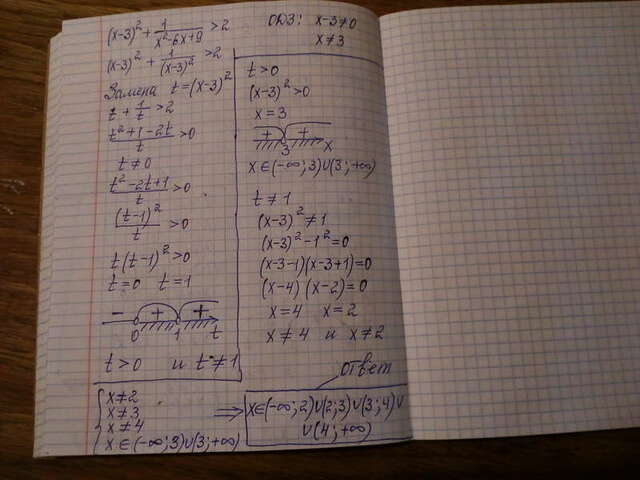 (x-3)² + 1/(x²-6x+9) > 2
(x-3)² + 1/(x-3)² > 2
Замена t=(x-3)²
t + 1/t > 2
(t²+1-2t)/t > 0
t≠0
(t²-2t+1)/t > 0
(t-1)²/t > 0
t(t-1)² > 0
t=0 t=1
- + +
0 1 t
t>0 и t≠1
ОДЗ: x-3≠0
x≠3
t>0
(x-3)²>0
x=3
+ +
3 x
x∈(-∞;3)∪(3;+∞)
t≠1
(x-3)²≠1
(x-3)²-1²=0
(x-3-1)(x-3+1)=0
(x-4)(x-2)=0
x=4 x=2
x≠4 и x≠2
ответ
{x≠2
x≠3
x≠4
x∈(-∞;3)∪(3;+∞)
⇒ x∈(-∞;2)∪(2;3)∪(3;4)∪
∪(4;+∞)